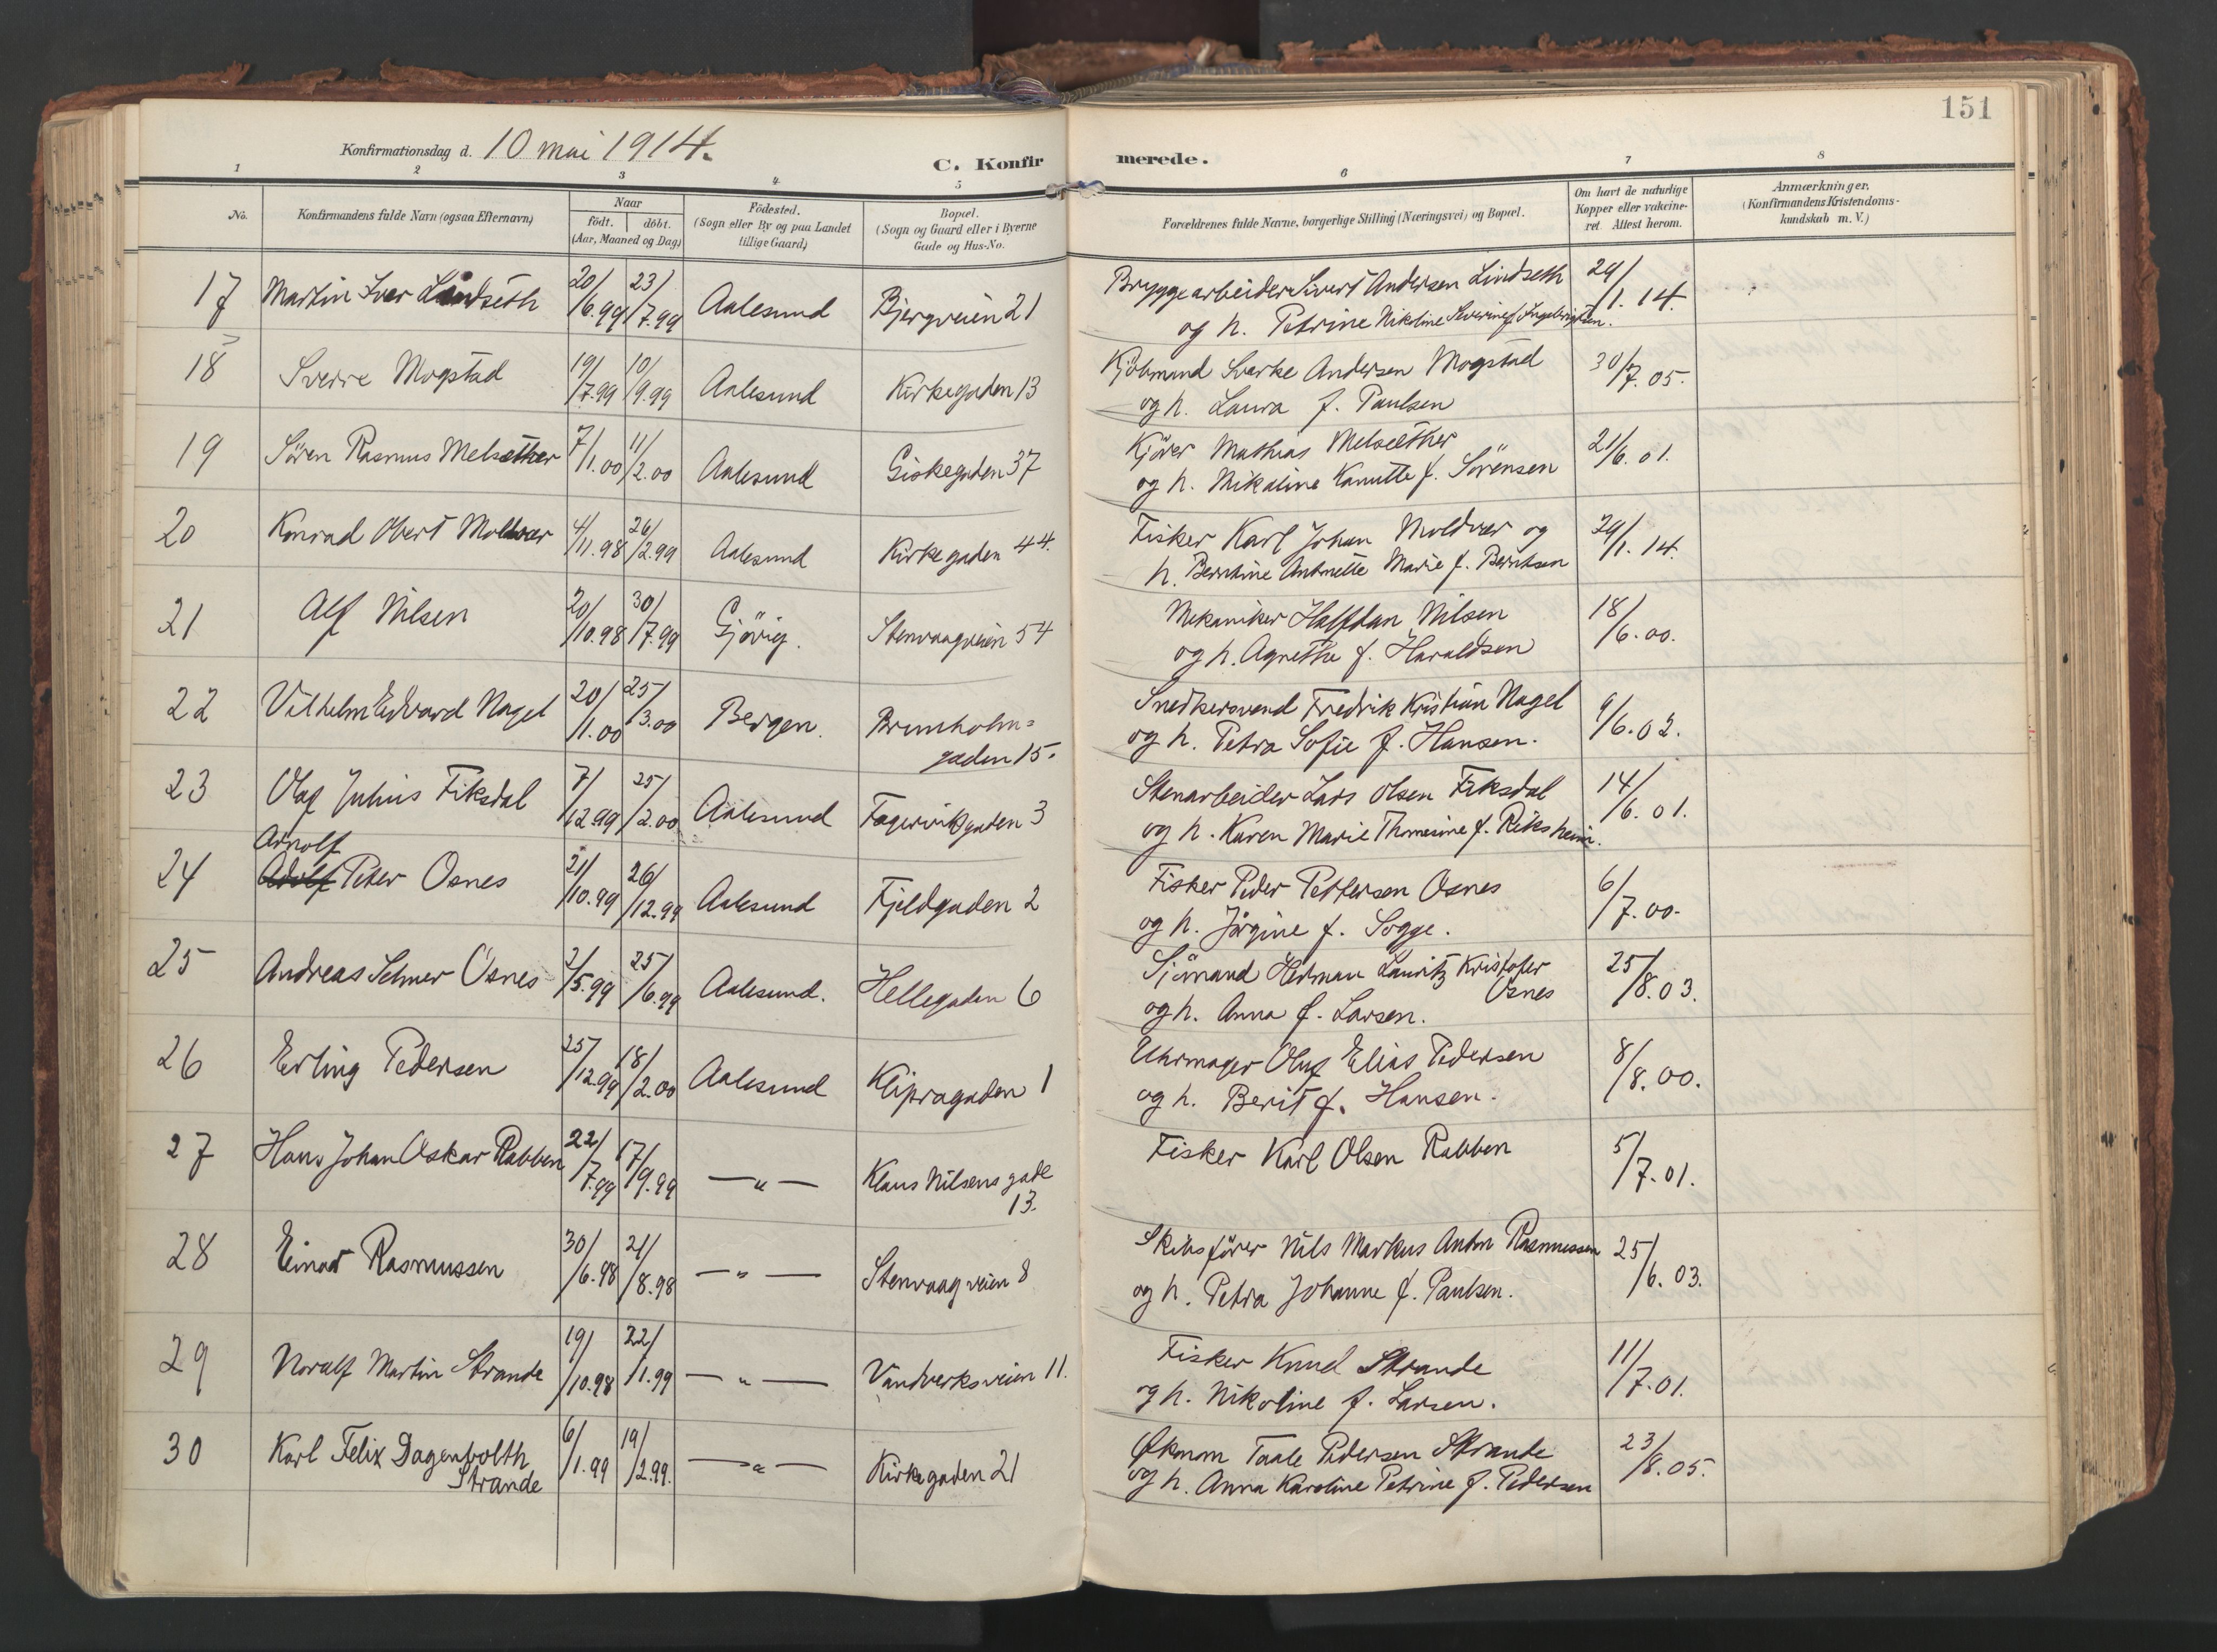 151
Konfirmationsdag d. 10 mai 1914.
C. Konfirmerede.
1 2 3 4 5 6 7 8
No.
Konfirmandens fulde Navn (ogsaa Efternavn)
Naar
födt. döbt.
(Aar, Maaned og Dag)
Födested.
(Sogn eller By og paa Landet
tillige Gaard)
Bopæl.
(Sogn og Gaard eller i Byerne
Gade og Hus-No.
Forældrenes fulde Navne, borgerlige Stilling (Næringsvei) og Bopæl.
Om havt de naturlige
Kopper eller vakcine-
ret. Attest herom.
Anmærkninger.
(Konfirmandens Kristendoms-
kundskab m. V.)
17 Martin Iver Lindseth 20/6.99 23/7.99 Aalesund Bjergveien 21 Bryggearbeider Sivert Andersen Lindseth 29/1.14.
og h. Petrine Nikoline Severine f. Ingebrigtsen.
18 Sverre Mogstad 19/7.99 10/9.99 Aalesund Kirkegaden 13 Kjöbmand Sverke Andersen Mogstad 30/7.05.
og h. Laura f. Paulsen
19 Sören Rasmus Melsether 7/1.00 11/2.00 Aalesund Giskegaden 37 Kjörer Mathias Melseether 21/6.01.
og h. Nikoline Kanutte f. Sörensen
20 Konrad Obert Moldvær 4/11.98 26/2.99 Aalesund Kirkegaden 44. Fisker Karl Johan Moldvær og 29/1.14.
h. Berntine Antonette Marie f. Berntsen
21 Alf Nilsen 20/10.98 30/7.99 Gjövig. Stenvaagveien 54 Mekaniker Halfdan Nilsen 18/6.00.
og h. Agnethe f. Haraldsen
22 Vilhelm Edvard Nagel 20/1.00 25/3.00 Bergen. Brunholm= Snedkersvend Fredrik Kristian Nagel 9/6.02.
gaden 15. og h. Petra Sofie f. Hansen.
23 Olaf Julius Fiksdal 7/12.99 25/2.00 Aalesund Fagervikgaden 3 Stenarbeider Lars Olsen Fiksdal 14/6.01.
og h. Karen Marie Thomesine f. Riksheim.
Arnolf
24 Adolf Peter Osnes 21/10.99 26/12.99 Aalesund Fjeldgaden 2 Fisker Peder Pettersen Osnes 6/7.00.
og h. Jörgine f. Sogge.
25 Andreas Selmer Osnes 2/5.99 25/6.99 Aalesund. Hellegaden 6 Sjömand Herman Lauritz Kristofer 25/8.03.
Osnes
og h. Anna f. Larsen.
26 Erling Pedersen 25/12.99 18/2.00 Aalesund Klipragaden 1 Uhrmager Oluf Elias Pedersen 8/8.00.
og h. Berit f. Hansen.
27 Hans Johan Oskar Rabben 22/7.99 17/9.99 — " — Klaus Nilsens gade Fisker Karl Olsen Rabben 5/7.01.
13.
28 Einar Rasmussen 30/6.98 21/8.98 — " — Stenvaagveien 8 Skibsförer Nils Markus Anton Rasmussen 25/6.03.
og h. Petra Johanne f. Paulsen.
29 Noralf Martin Strande 19/10.98 22/1.99 — " — Vandverksveien 11. Fisker Knud Strande 11/7.01.
og h. Nikoline f. Larsen.
30 Karl Felix Dagenbolth 6/1.99 19/2.99. — " — Kirkegaden 21 Økonom Taale Pedersen Strande 23/8.05.
Strande og h. Anna Karoline Petrine f. Pedersen